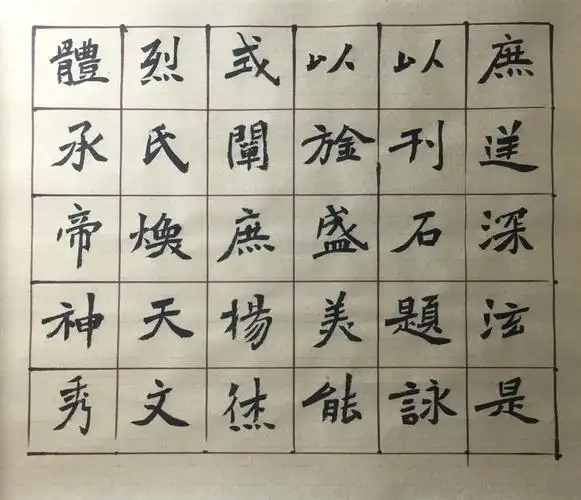 庶逹深泫是
以刊石題詠
以旍盛美能
式闡庶揚烋
烈氏煥天文
體承帝神秀